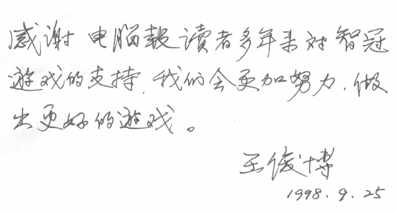 感谢 电脑报读者多年来对智冠
游戏的支持,我们会更加努力,做
出更好的游戏。
王俊博
1998.9.25